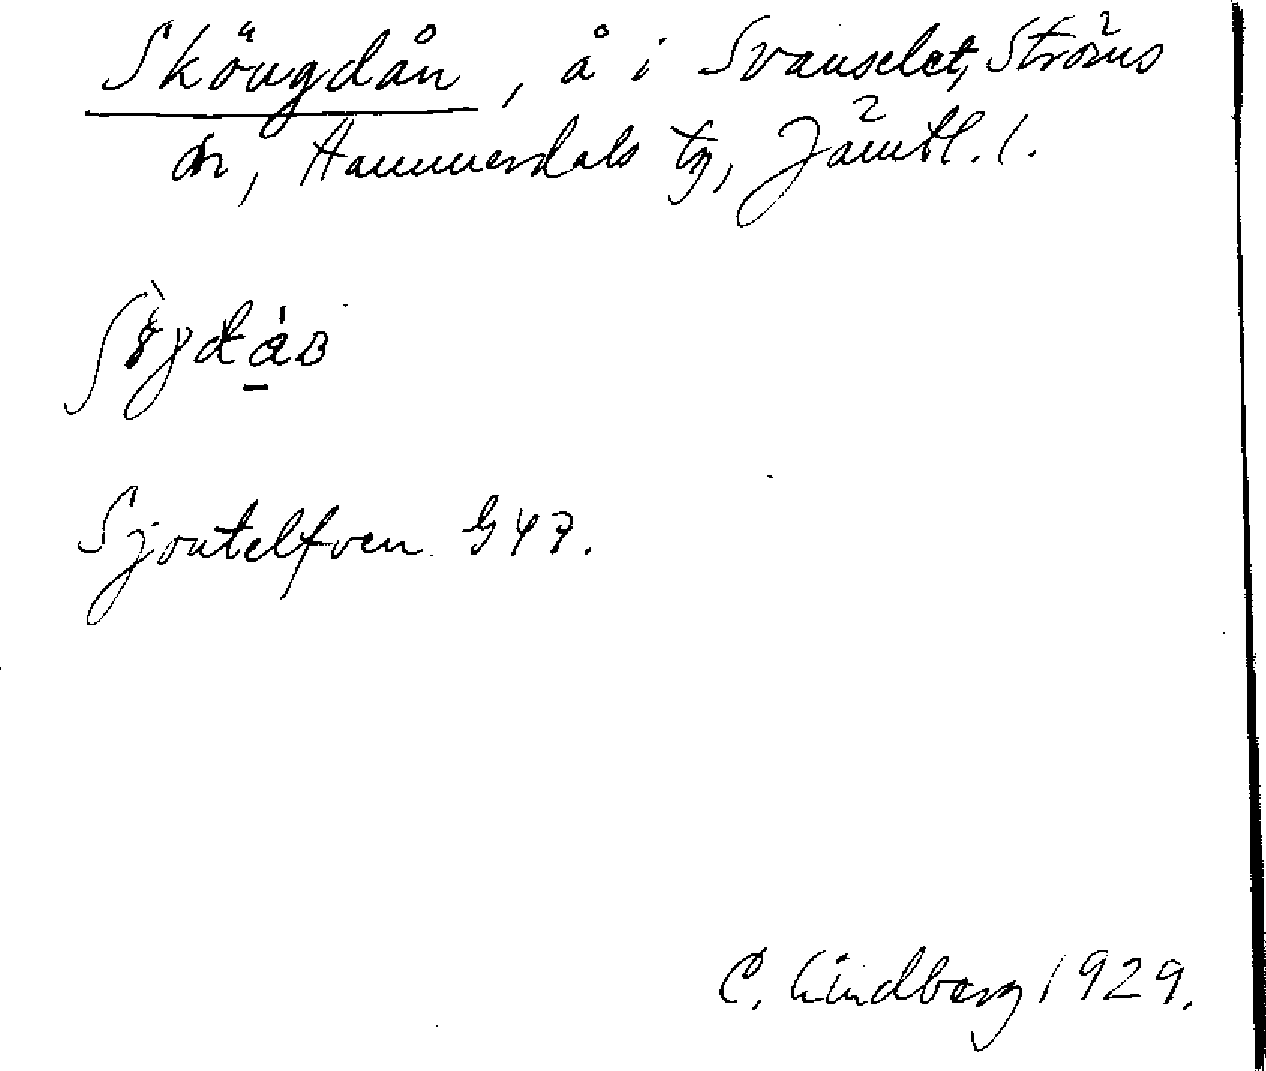 Sköugdån, å i Svanselet, Ströms
sn, Hammerdals tg, Jämtl. l.
Sjoutelfven G 47.
C. Lindberg 1929.